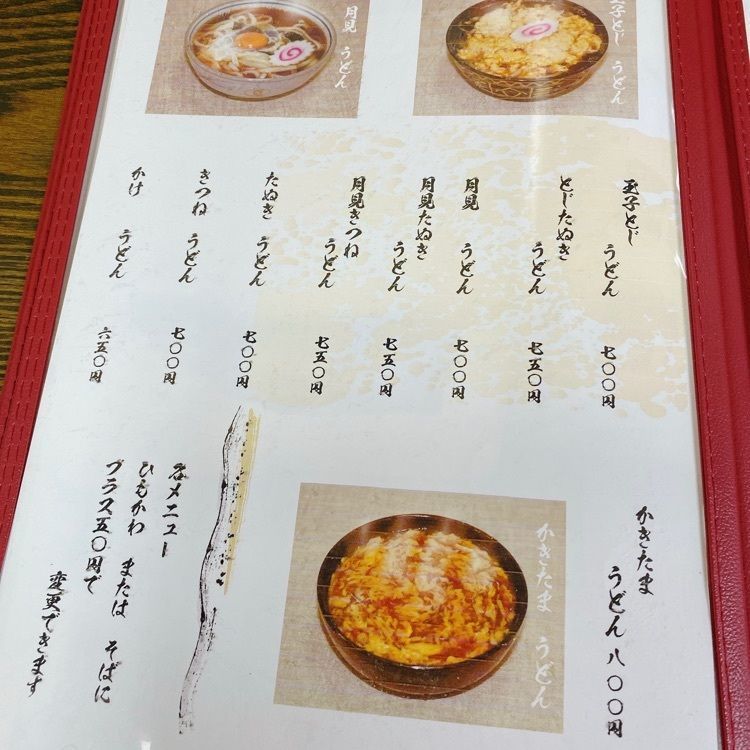 月見 うどん
玉子とじ うどん
玉子とじ うどん 七〇〇円
とじたぬき うどん 七五〇円
月見 うどん 七〇〇円
月見たぬき うどん 七五〇円
月見きつね うどん 七五〇円
たぬき うどん 七〇〇円
きつね うどん 七〇〇円
かけ うどん 六五〇円
かきたま うどん 八〇〇円
かきたま うどん
各メニュー
ひもかわ または そばに
プラス五〇円で
変更できます